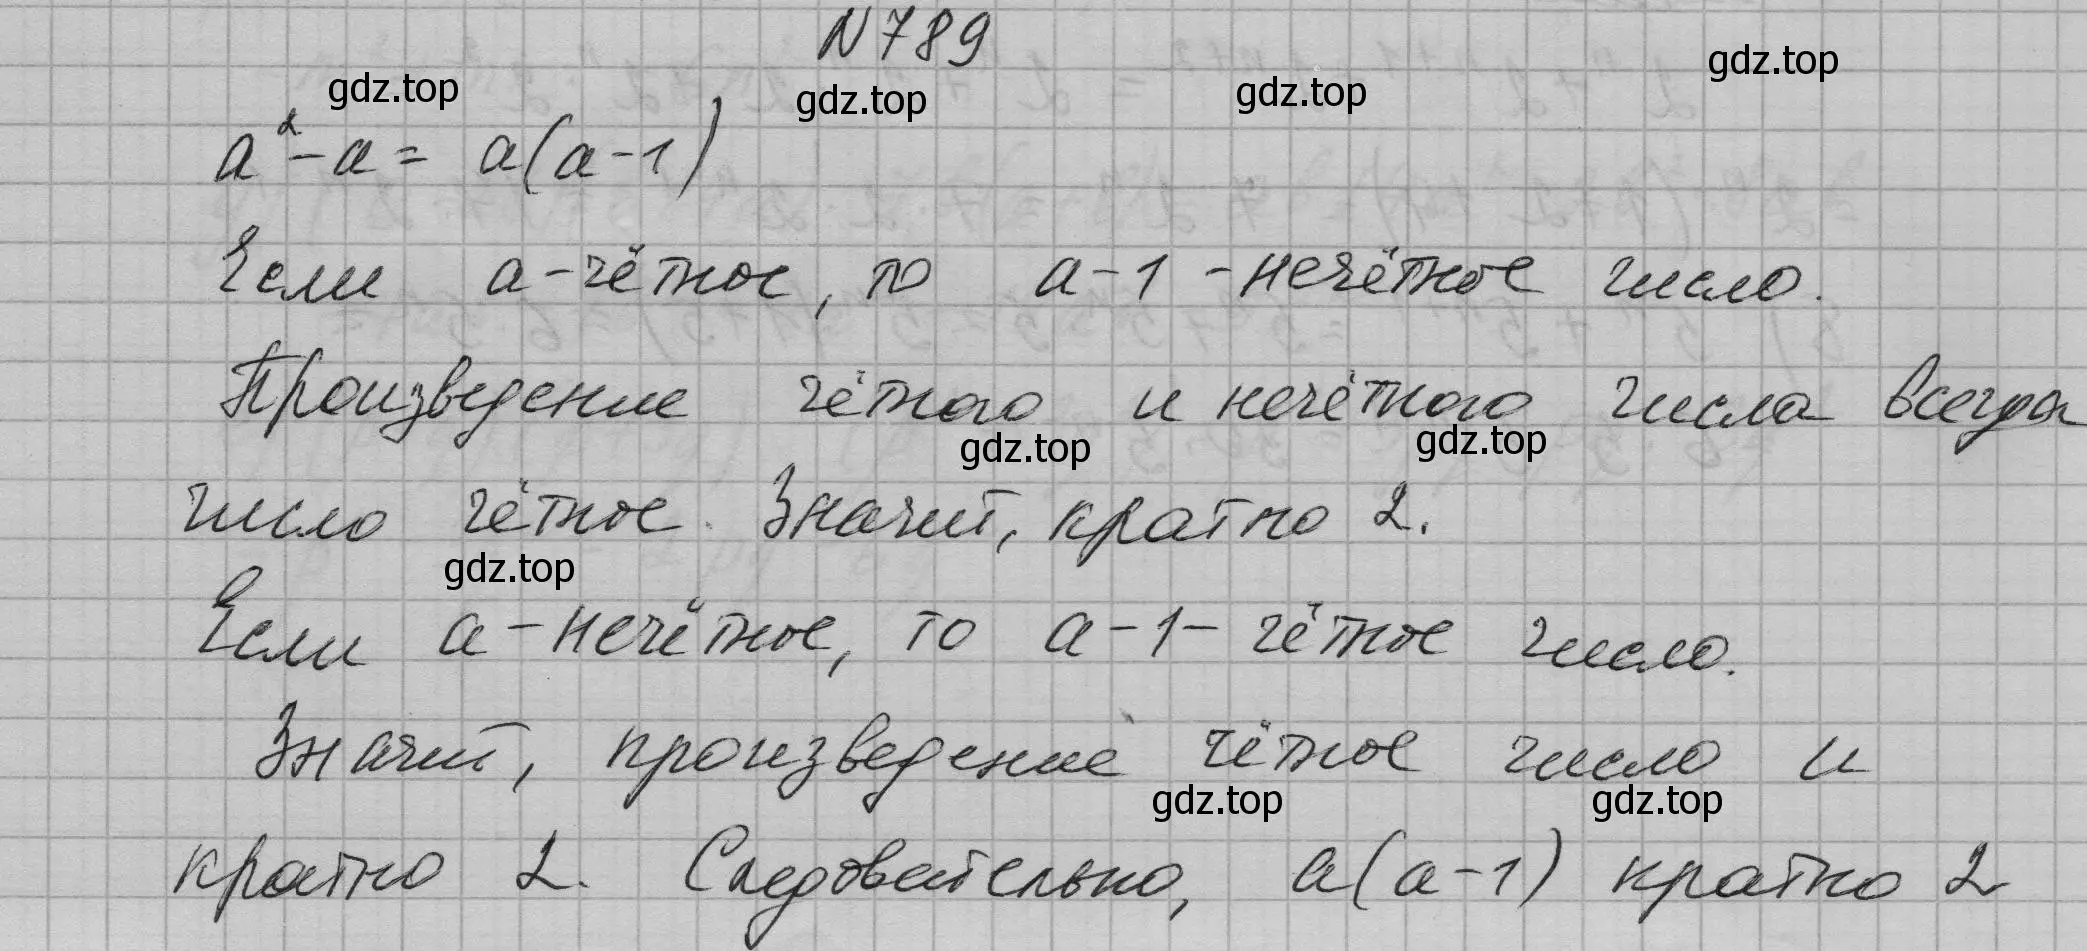 N789
gdz.top
gdz.top
gdz.top
gdz.top
a² - a = a(a-1)
Если a - чётное, то a-1 - нечётное число.
Произведение чётного и нечётного числа всегда
gdz.top
gdz.top
число чётное. Значит, кратно 2.
gdz.top
Если a - нечётное, то a-1 - чётное число.
Значит, произведение чётное число и
gdz.top
gdz.top
кратно 2. Следовательно, a(a-1) кратно 2